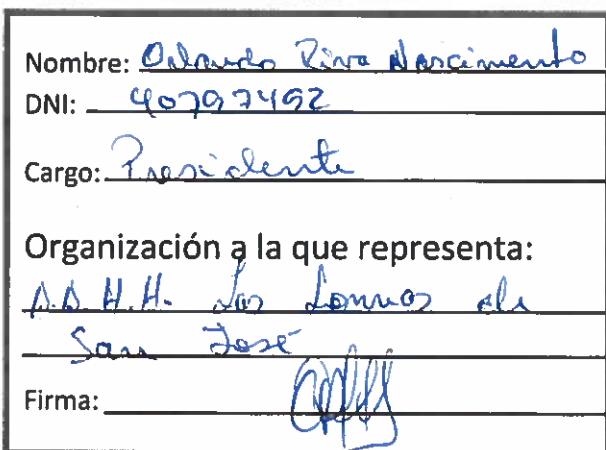 Nombre: Orlando Riva Nascimento
DNI: 40797492
Cargo: Presidente
Organización a la que representa:
A.A.H.H. Las Lomas de
San José
Firma: